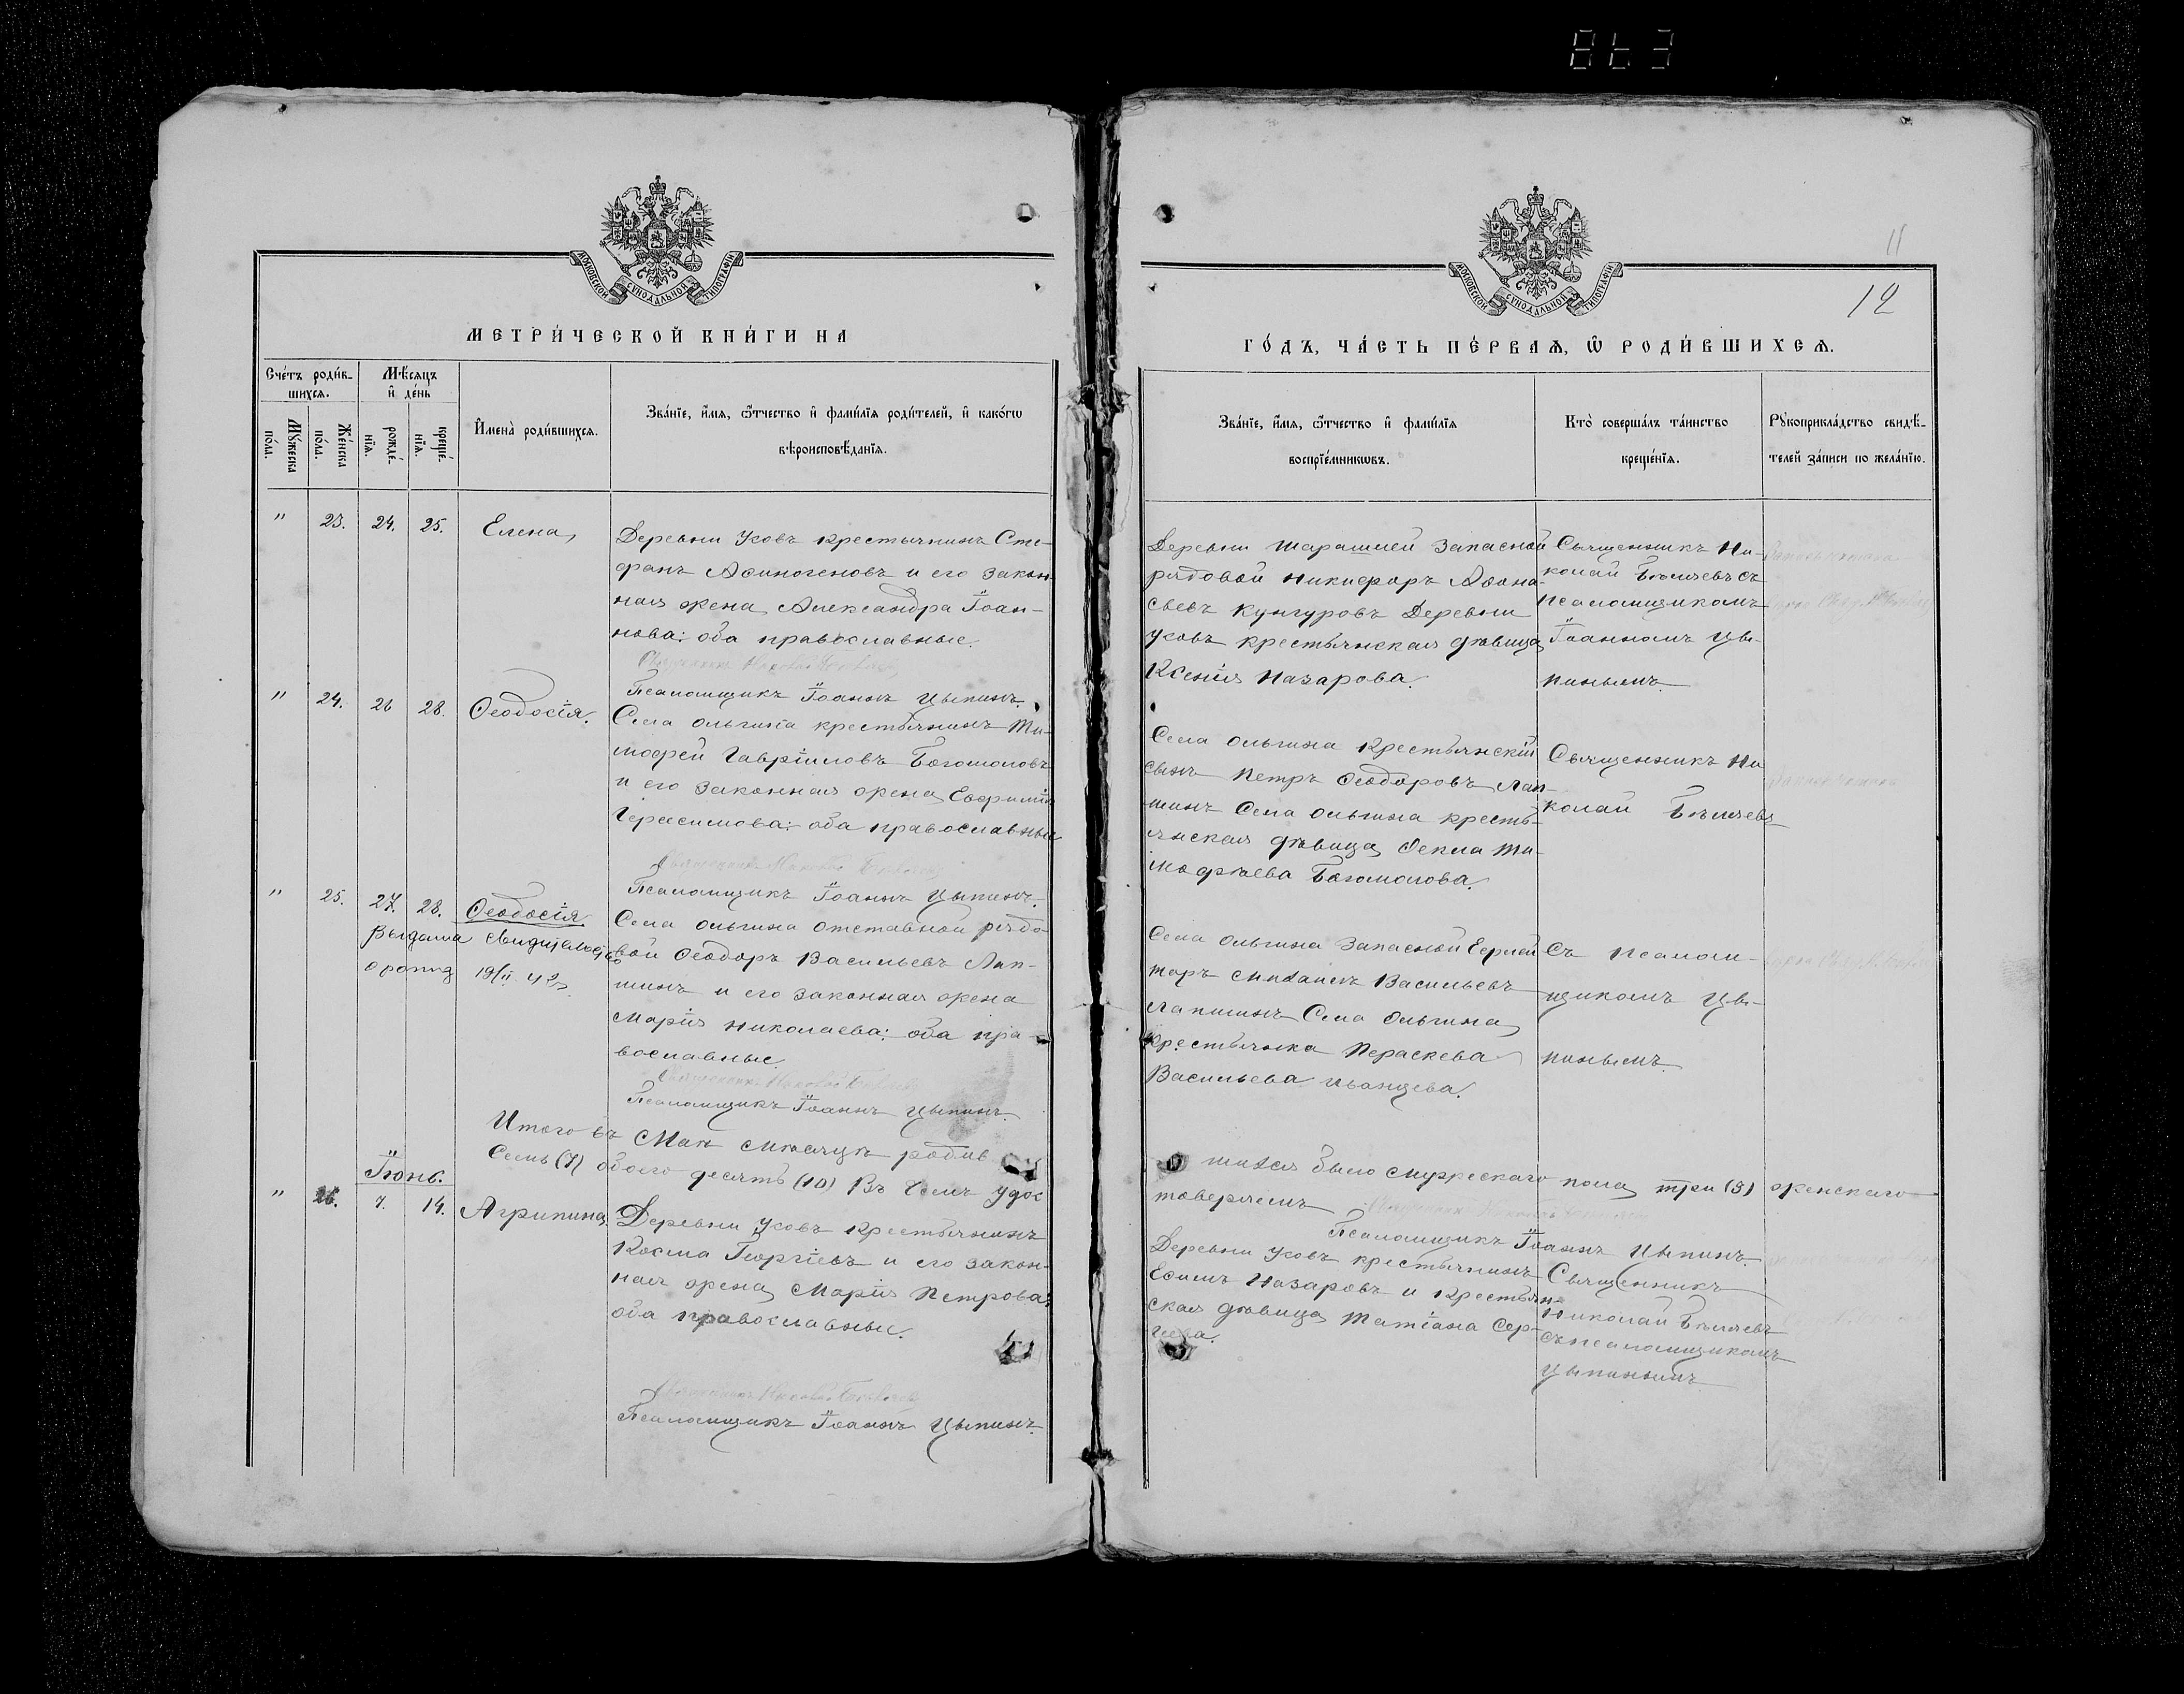 11
12
МОСКОВСКОЙ СѴНОДАЛЬНОЙ ТИПОГРАФІИ
МЕТРИ́ЧЕСКОЙ КНИ́ГИ НА
Сче́тъ роди́в-
шихсѧ.
Мꙋ́жеска
по́ла.
Же́нска
по́ла.
Мѣ́сѧцъ
и҆ де́нь
рожде́-
нїѧ.
креще́-
нїѧ.
И҆мена̀ роди́вшихсѧ.
Зва́нїе, и҆́мѧ, ѻ҆́тчество и҆ фами́лїѧ роди́телей, и҆ како́гѡ
вѣроисповѣ́данїѧ.
" 23. 24. 25. Елена,
Деревни Усовъ крестьянинъ Сте-
фанъ Аѳиногеновъ и его закон-
ная жена Александра Іоан-
нова: оба православные.
Псаломщикъ Іоаннъ Цыпинъ.
" 24. 26 28. Ѳеодосія.
Села Ольгина крестьянинъ Ти-
моѳей Гавріиловъ Богомоловъ
и его законная жена Евфимія
Герасимова: оба православные
Псаломщикъ Іоаннъ Цыпинъ.
" 25. 27. 28. Ѳеодосія
Села Ольгина отставной рядо-
вой Ѳеодоръ Васильевъ Лап-
шинъ и его законная жена
Марія Николаева: оба пра-
вославные.
Псаломщикъ Іоаннъ Цыпинъ.
Итого въ Маѣ мѣсяцѣ родив
Семь (7) обоего десять (10) Въ чемъ удос
Іюнь.
" 26. 7. 14. Агрипина,
Деревни Усовъ крестьянинъ
Косма Георгіевъ и его закон-
ная жена Марія Петрова:
оба православные.
Псаломщикъ Іоаннъ Цыпинъ.
МОСКОВСКОЙ СѴНОДАЛЬНОЙ ТИПОГРАФІИ
ГО́ДЪ, ЧА́СТЬ ПЕ́РВАѦ, Ѡ҆ РОДИ́ВШИХСѦ.
Зва́нїе, и҆́мѧ, ѻ҆́тчество и҆ фами́лїѧ
воспрїе́мникѡвъ.
Кто̀ соверша́лъ та́инство
креще́нїѧ.
Рꙋкоприкла́дство свидѣ́-
телей за́писи по жела́нїю.
рядовой Никифоръ Аѳана-
сьевъ Кунгуровъ Деревни
Усовъ крестьянская дѣвица
Ксенія Назарова.
Священникъ Ни-
колай Бѣляевъ съ
псаломщикомъ
Іоанномъ Цы-
пинымъ.
Села Ольгина Крестьянскій
сынъ Петръ Ѳеодоровъ Лап-
шинъ Села Ольгина кресть-
янская дѣвица Ѳекла Ти-
моѳеева Богомолова.
Священникъ Ни
колай Бѣляевъ
Села Ольгина Запасной
Михаилъ Васильевъ
Лапшинъ Села Ольгина
крестьянка Параскева
Васильева
Съ псалом-
щикомъ Цы-
пинымъ.
шихся было мужескаго пола три (3) женскаго
товеряемъ
Псаломщикъ Іоаннъ Цыпинъ.
Деревни Усовъ крестьянинъ
Назаровъ и крестьян-
ская дѣвица Татіана Сер-
гіева.
Священникъ
Николай Бѣляевъ
съ псаломщикомъ
Цыпинымъ